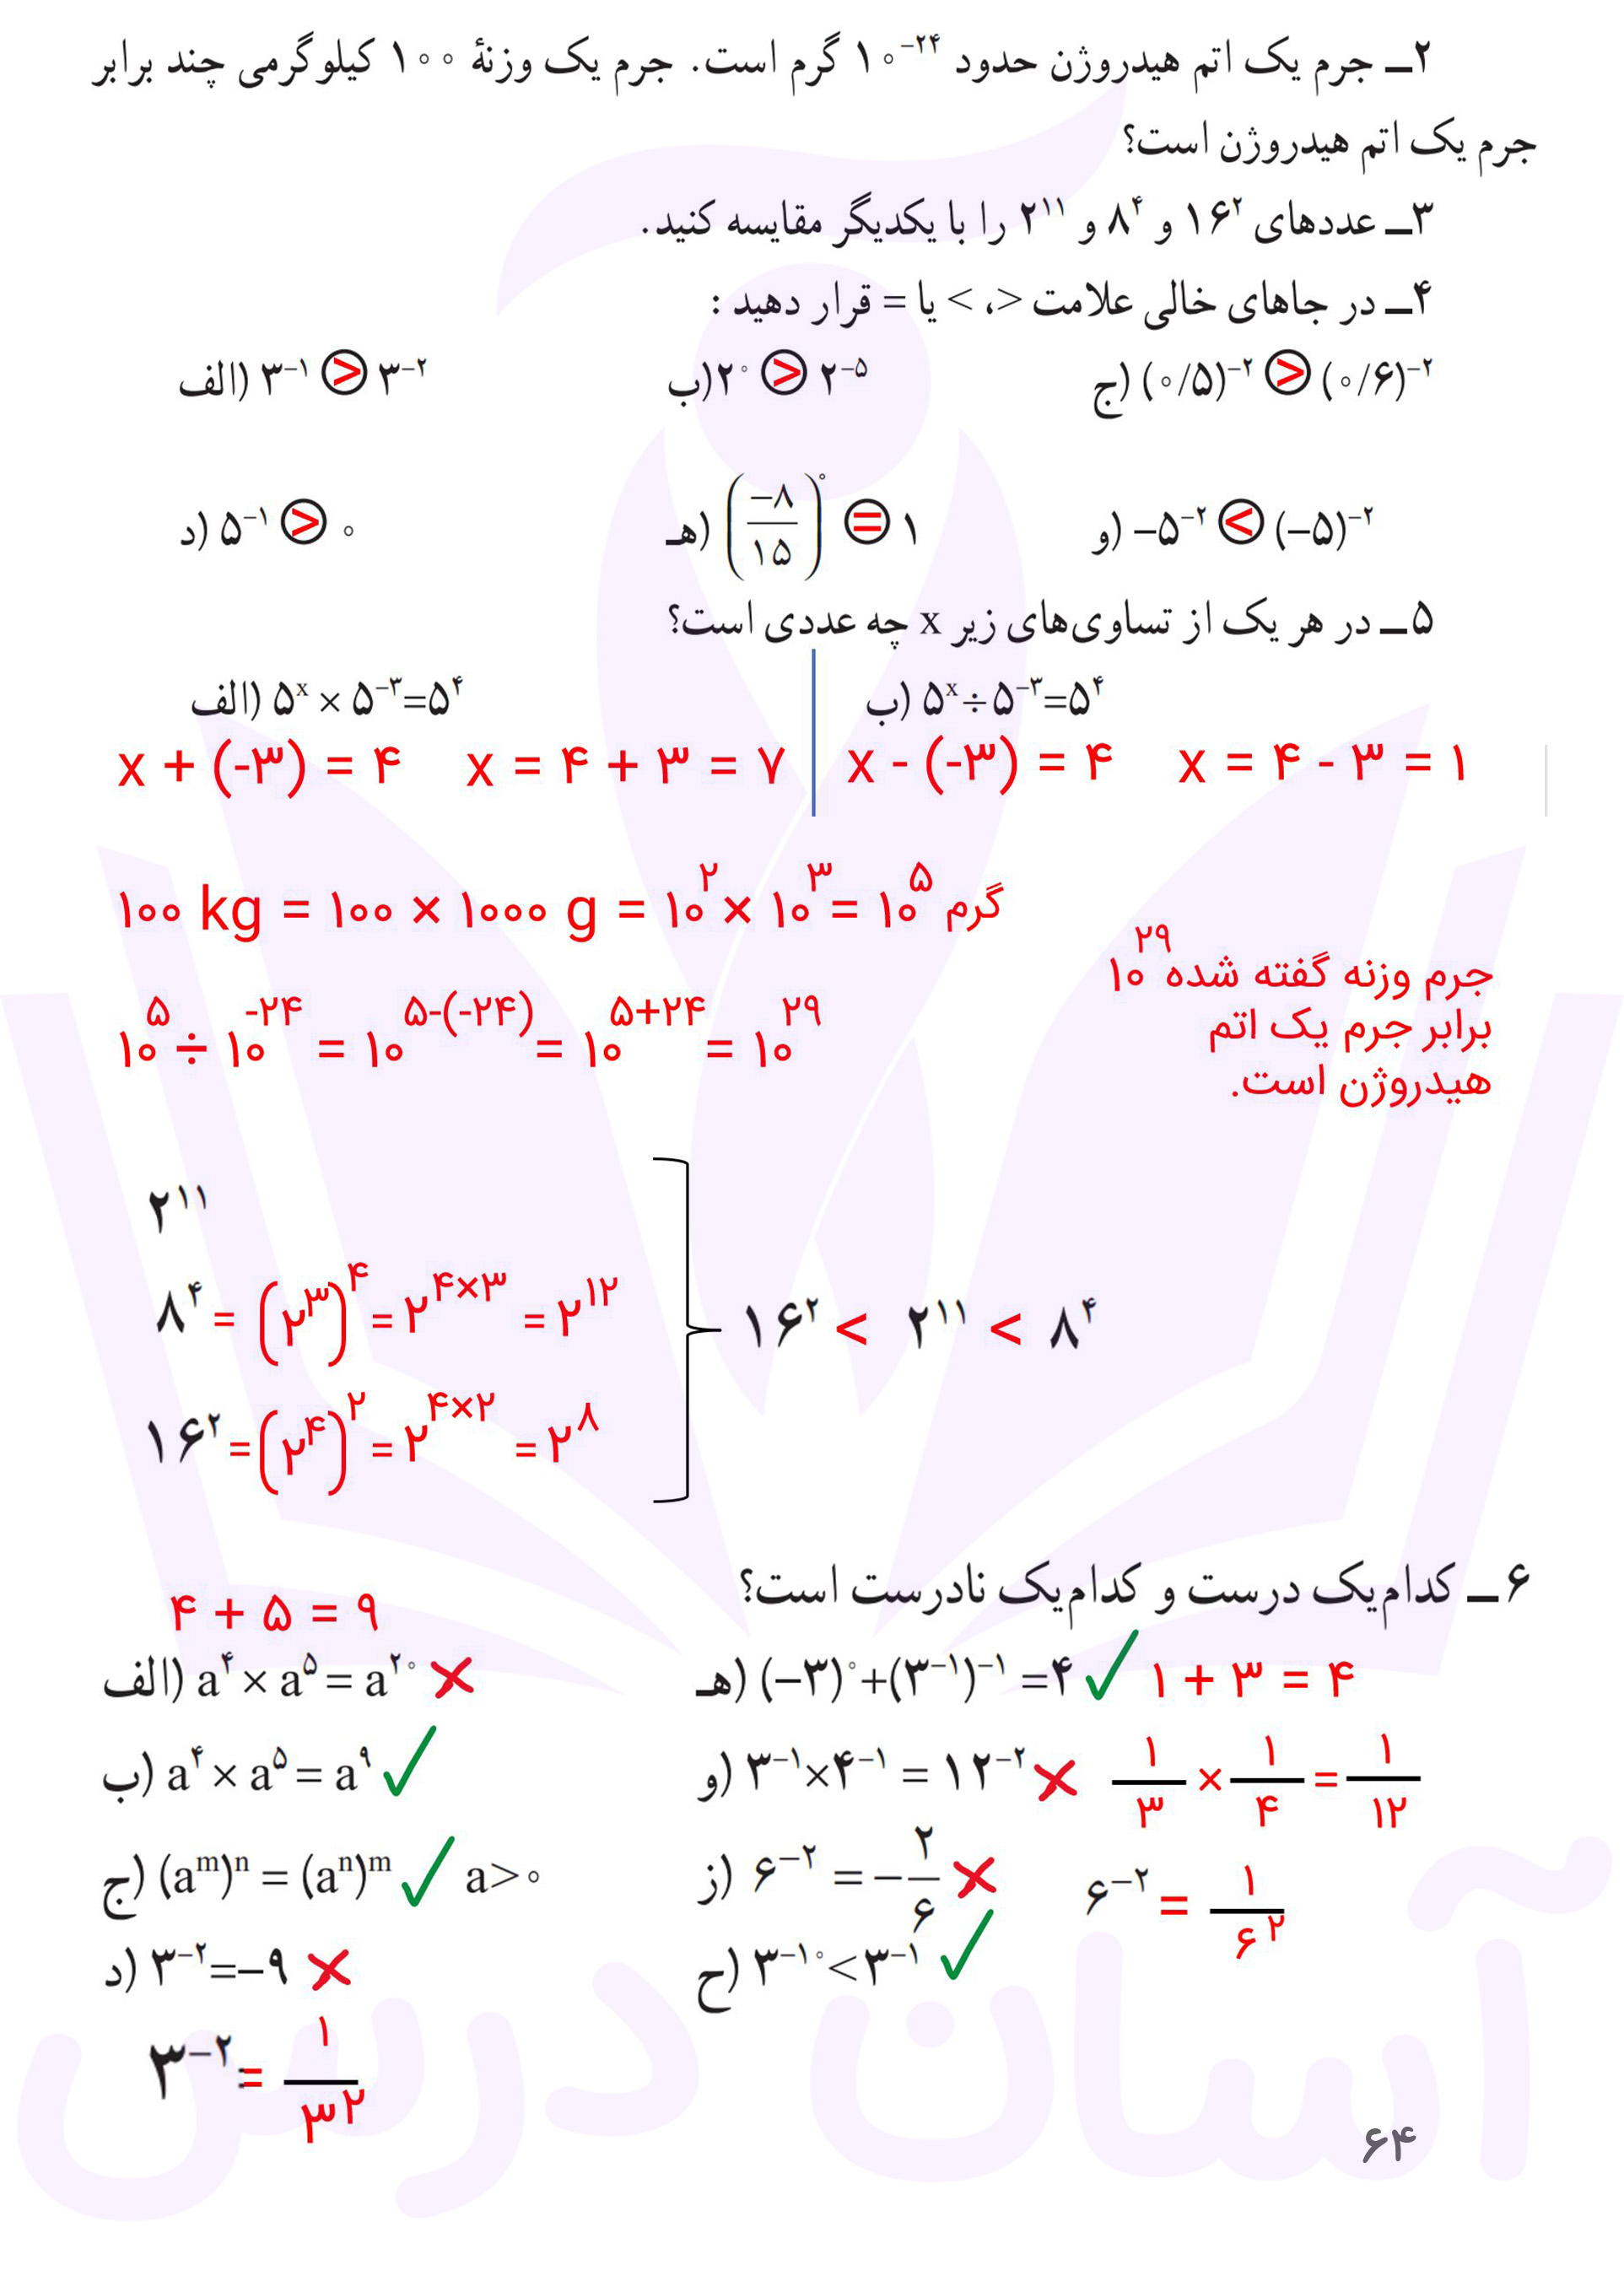 ۲ــ جرم یک اتم هیدروژن حدود ۱۰⁻²⁴ گرم است. جرم یک وزنهٔ ۱۰۰ کیلوگرمی چند برابر
جرم یک اتم هیدروژن است؟
۳ــ عددهای ۱۶^۲ و ۸^۴ و ۲^۱۱ را با یکدیگر مقایسه کنید.
۴ــ در جاهای خالی علامت <، > یا = قرار دهید :
الف) ۳^−۱ > ۳^−۲
ب) ۲^۰ > ۲^−۵
ج) (۰/۵)^−۲ > (۰/۶)^−۲
د) ۵^−۱ > ۰
هـ) (−۸/۱۵)^۰ = ۱
و) −۵^−۲ < (−۵)^−۲
۵ــ در هر یک از تساوی‌های زیر x چه عددی است؟
الف) ۵^x × ۵^−۳=۵^۴
ب) ۵^x÷۵^−۳=۵^۴
x + (-۳) = ۴   x = ۴ + ۳ = ۷
x - (-۳) = ۴   x = ۴ - ۳ = ۱
۱۰۰ kg = ۱۰۰ × ۱۰۰۰ g = ۱۰^۲ × ۱۰^۳ = ۱۰^۵ گرم
۱۰^۵ ÷ ۱۰^-۲۴ = ۱۰^۵-(-۲۴) = ۱۰^۵+۲۴ = ۱۰^۲۹
جرم وزنه گفته شده ۱۰^۲۹
برابر جرم یک اتم
هیدروژن است.
۲^۱۱
۸^۴ = (۲^۳)^۴ = ۲^۴×۳ = ۲^۱۲
۱۶^۲ = (۲^۴)^۲ = ۲^۴×۲ = ۲^۸
۱۶^۲ < ۲^۱۱ < ۸^۴
۶ــ کدام‌یک درست و کدام‌یک نادرست است؟
۴ + ۵ = ۹
الف) a^۴ × a^۵ = a^۲۰ ✗
هـ) (−۳)^۰+(۳^−۱)^−۱ =۴ ✓ ۱ + ۳ = ۴
ب) a^۴ × a^۵ = a^۹ ✓
و) ۳^−۱×۴^−۱ = ۱۲^−۲ ✗ ۱/۳ × ۱/۴ = ۱/۱۲
ج) (a^m)^n = (a^n)^m ✓ a>۰
ز) ۶^−۲ = −۲/۶ ✗ ۶^−۲ = ۱/۶^۲
د) ۳^−۲=−۹ ✗
ح) ۳^−۱۰<۳^−۱ ✓
۳^−۲ = ۱/۳^۲
آسان درس
۶۴